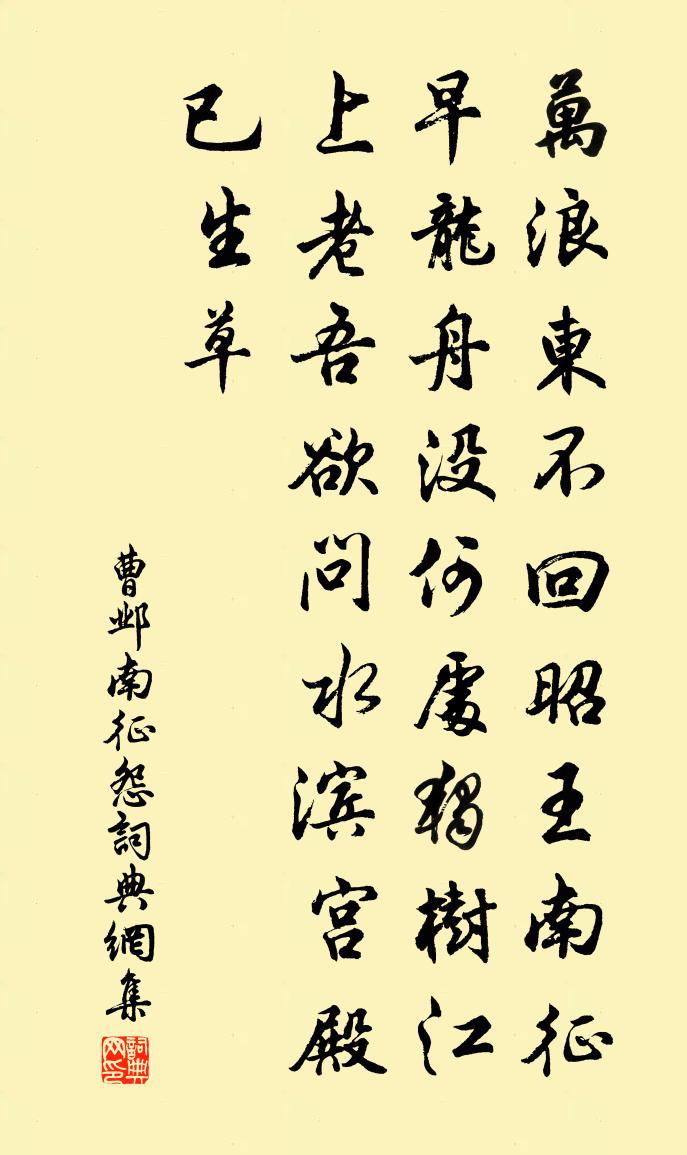 萬浪東不回昭王南征
早龍舟没何處獨樹江
上老吾欲問水滨宫殿
已生草
曹邺南征怨詞典網集
詞典网印